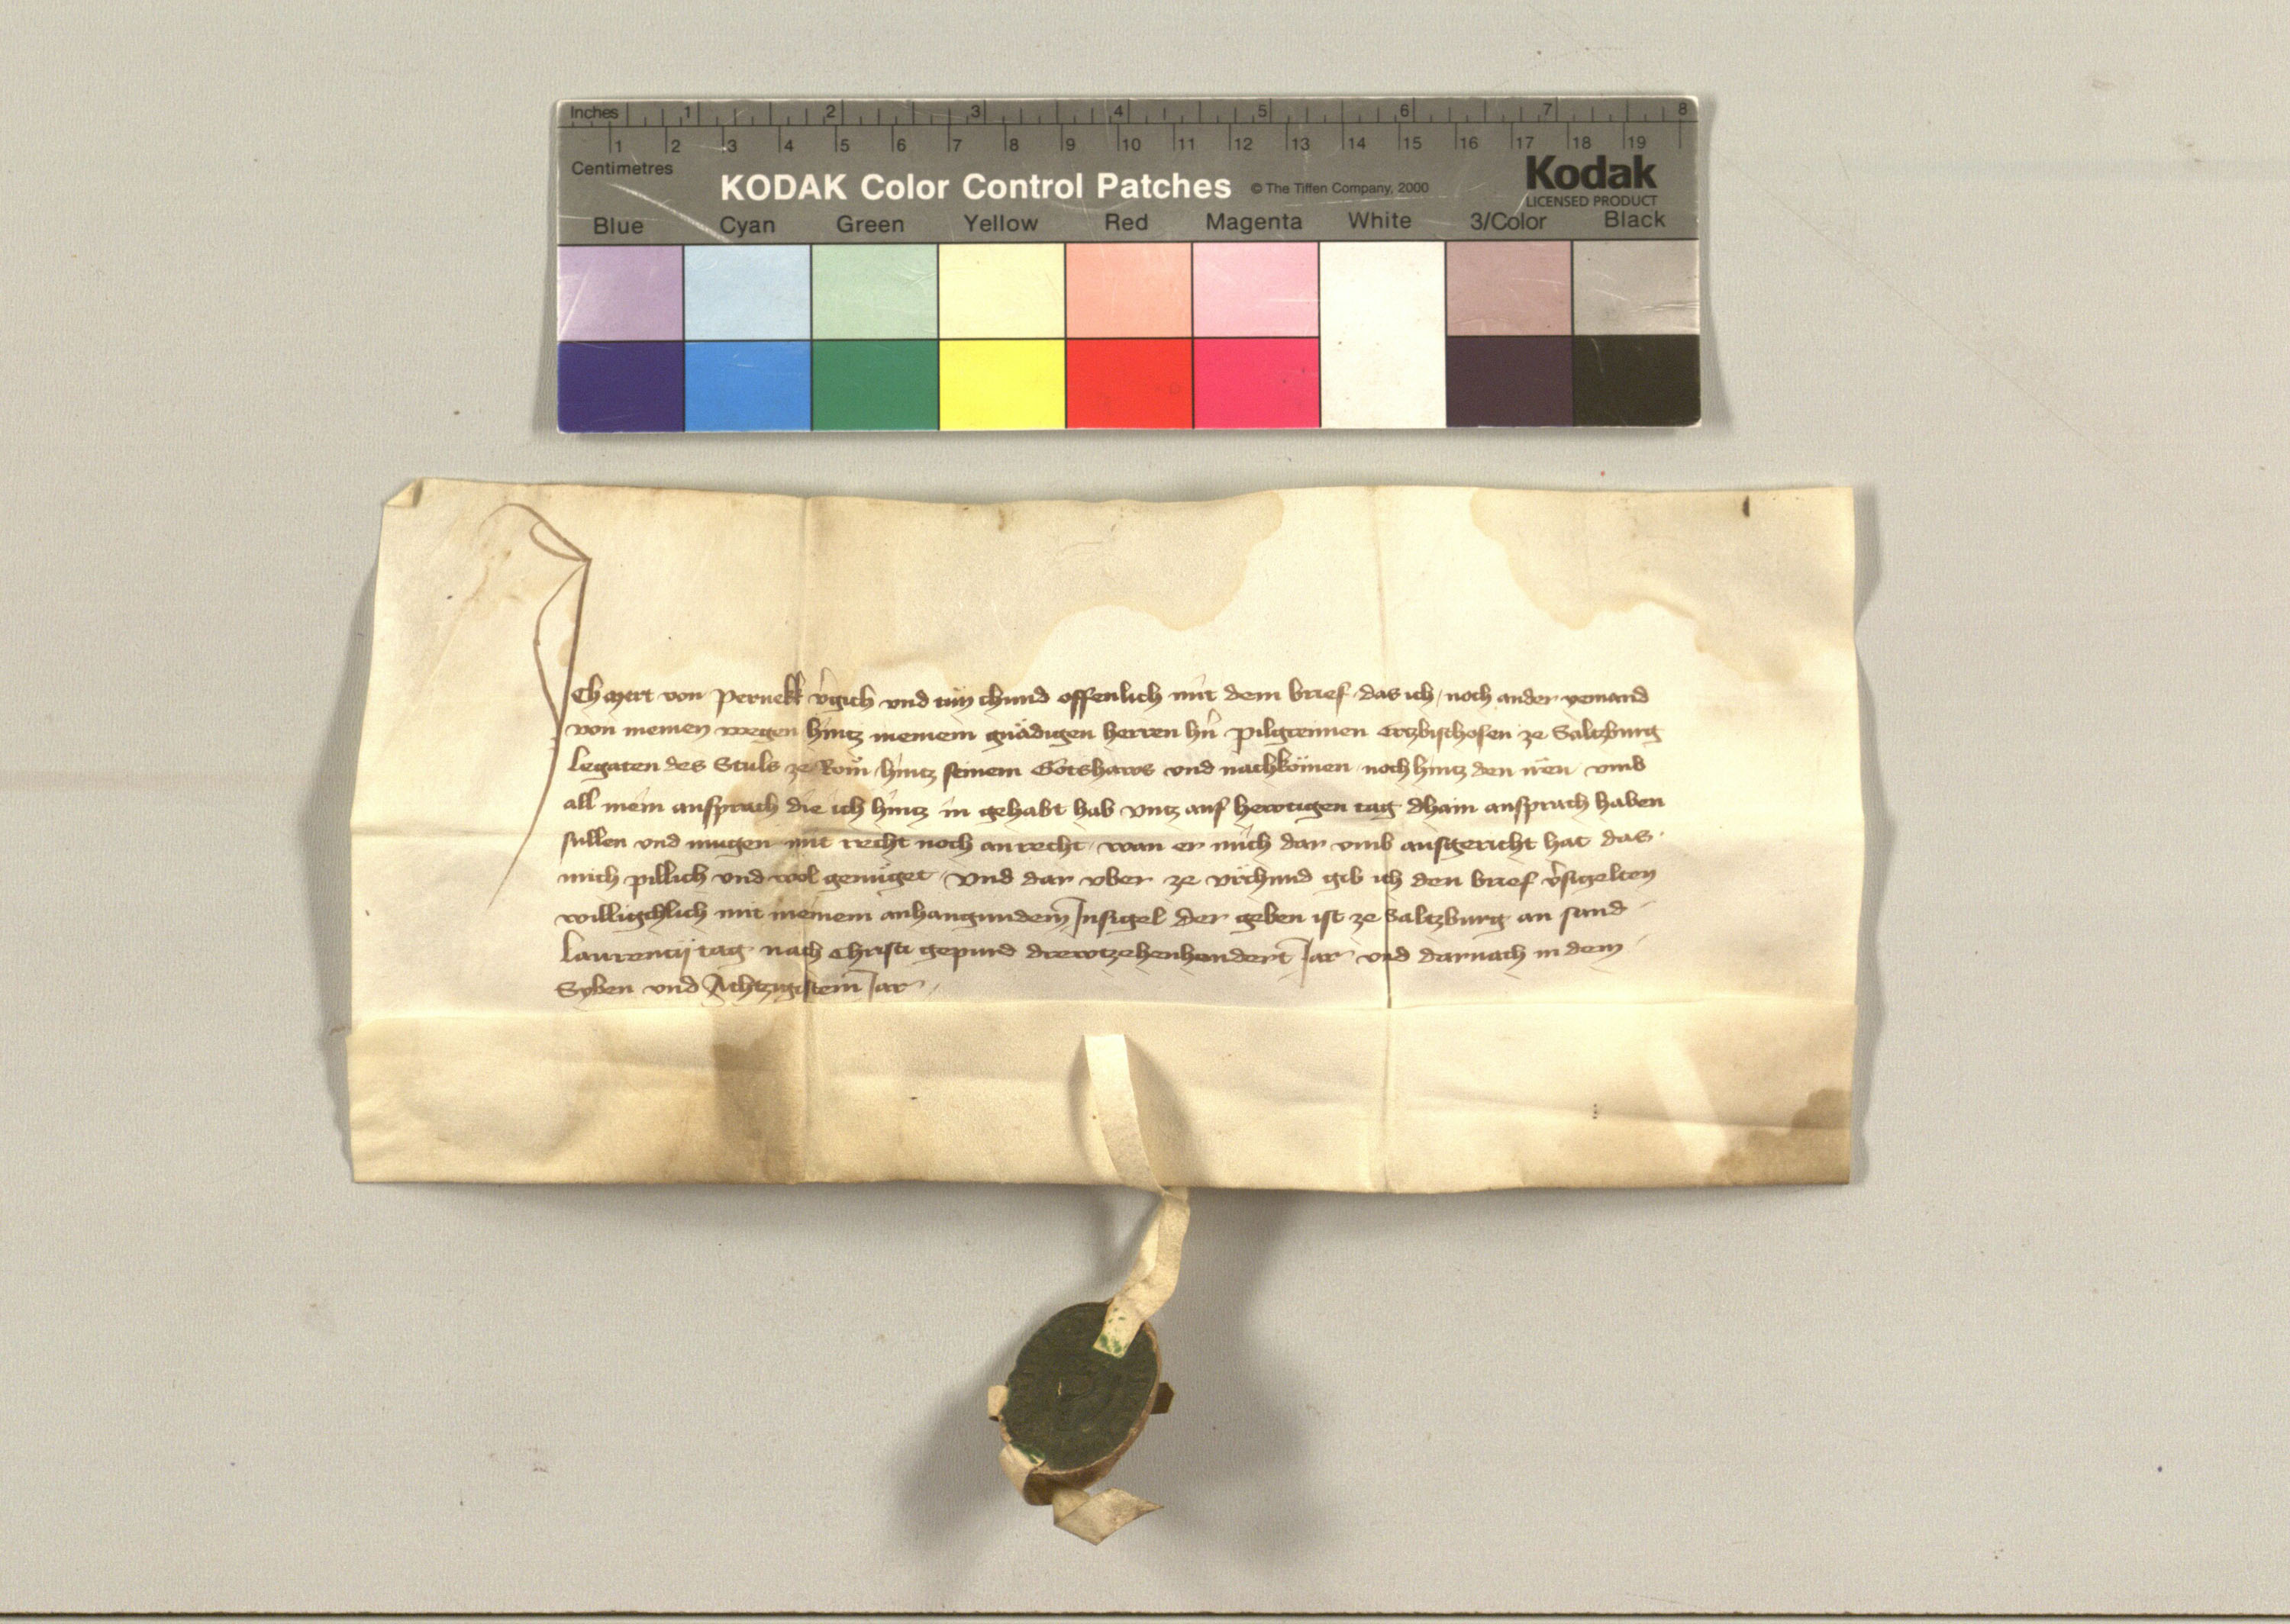 Inches 1 2 3 4 5 6 7 8
1 2 3 4 5 6 7 8 9 10 11 12 13 14 15 16 17 18 19
Centimetres
KODAK Color Control Patches © The Tiffen Company, 2000 Kodak
LICENSED PRODUCT
Blue Cyan Green Yellow Red Magenta White 3/Color Black
Ich von Pernekk v̾gich vnd tun chund offenlich mit dem brief das ich noch ander yemand
von meinen wegen hintz meinem gnädigen herren hn̄ pilgreimen Ertzbischofen ze Saltzburg
legaten des Stuls ze Rom hintz seinem Gotshaws vnd nachkömen noch hintz den iren vmb
all mein ansprach die ich hintz in gehabt hab vntz auf hewtigen tag dhain ansprach haben
sullen vnd mugen mit recht noch an recht wan er mich dar vmb ausgericht hat das
mich pillich vnd wol genüget Vnd dar vber ze vrchund gib ich den brief v̾sigelten
willigchlich mit meinem anhangundem Insigel der geben ist ze Saltzburg an sand
Laurencij tag nach Christi gepurd drewtzehenhundert Iar vnd darnach in dem
Syben vnd Achtzigistem Iar